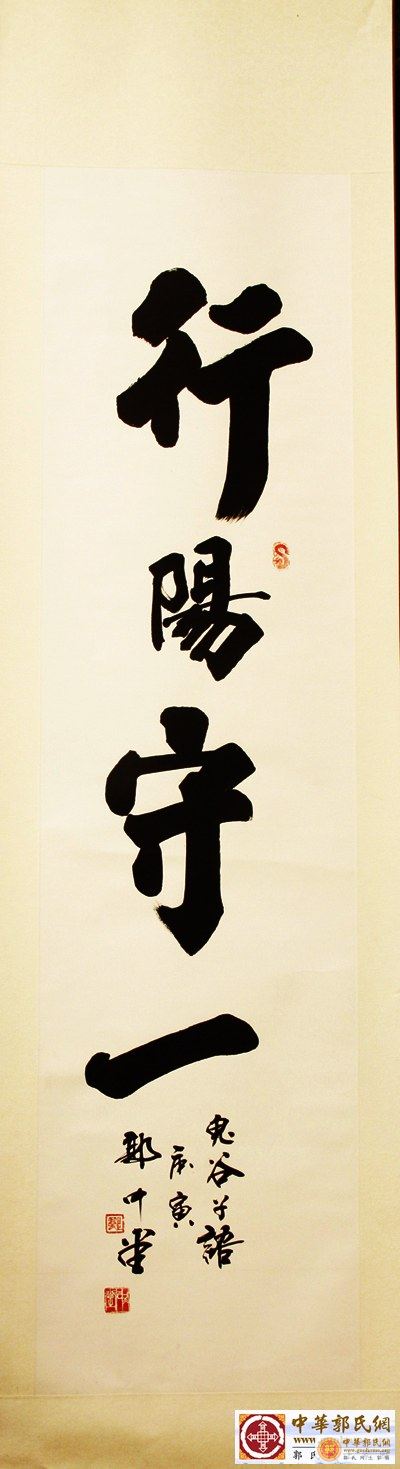 行陽守一
鬼谷子語
庚寅
郭中堂
中華郭氏網
www.
中華郭氏網